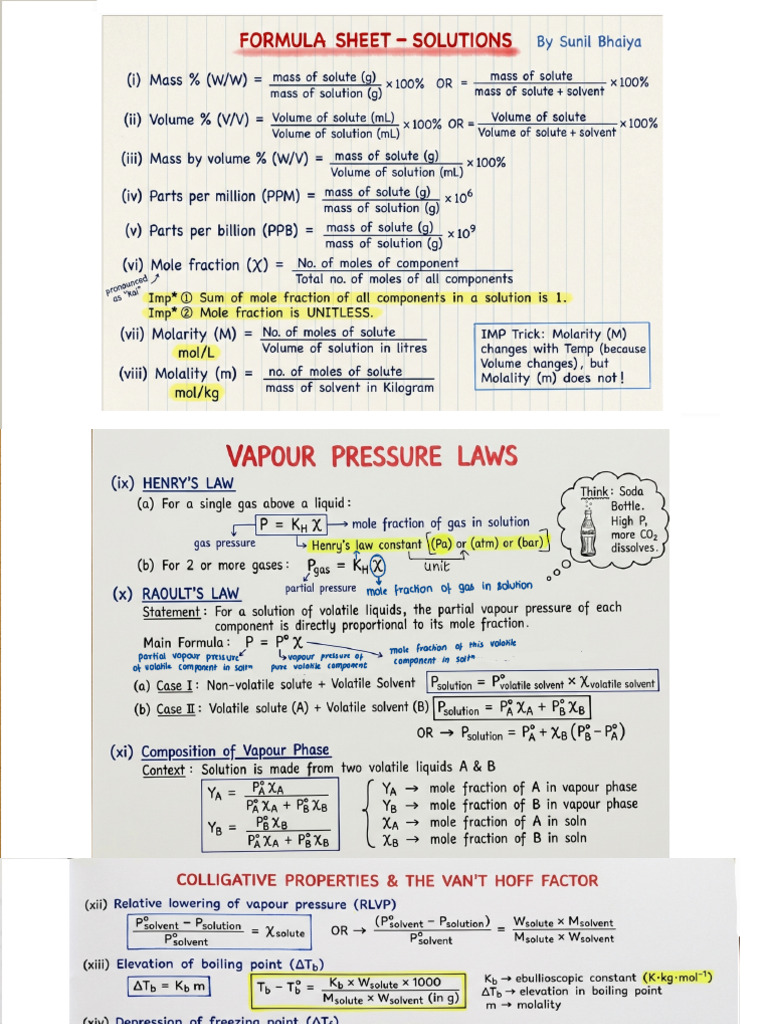 FORMULA SHEET – SOLUTIONS By Sunil Bhaiya
(i) Mass % (W/W) = mass of solute (g) / mass of solution (g) × 100% OR = mass of solute / mass of solute + solvent × 100%
(ii) Volume % (V/V) = Volume of solute (mL) / Volume of solution (mL) × 100% OR = Volume of solute / Volume of solute + solvent × 100%
(iii) Mass by volume % (W/V) = mass of solute (g) / Volume of solution (mL) × 100%
(iv) Parts per million (PPM) = mass of solute (g) / mass of solution (g) × 10⁶
(v) Parts per billion (PPB) = mass of solute (g) / mass of solution (g) × 10⁹
(vi) Mole fraction (χ) = No. of moles of component / Total no. of moles of all components
pronounced as "kai"
Imp* ① Sum of mole fraction of all components in a solution is 1.
Imp* ② Mole fraction is UNITLESS.
(vii) Molarity (M) = No. of moles of solute / Volume of solution in litres
mol/L
(viii) Molality (m) = no. of moles of solute / mass of solvent in Kilogram
mol/kg
IMP Trick: Molarity (M)
changes with Temp (because
Volume changes), but
Molality (m) does not!
VAPOUR PRESSURE LAWS
(ix) HENRY'S LAW
(a) For a single gas above a liquid:
P = K_H χ → mole fraction of gas in solution
gas pressure
Henry's law constant [(Pa) or (atm) or (bar)]
unit
(b) For 2 or more gases: P_gas = K_H χ
partial pressure mole fraction of gas in solution
Think: Soda
Bottle.
High P,
more CO₂
dissolves.
(x) RAOULT'S LAW
Statement: For a solution of volatile liquids, the partial vapour pressure of each
component is directly proportional to its mole fraction.
Main Formula: P = P° χ
partial vapour pressure
of volatile component in solⁿ
vapour pressure of
pure volatile component
mole fraction of this volatile
component in solⁿ
(a) Case I: Non-volatile solute + Volatile Solvent P_solution = P°_volatile solvent × χ_volatile solvent
(b) Case II: Volatile solute (A) + Volatile solvent (B) P_solution = P°_A χ_A + P°_B χ_B
OR → P_solution = P°_A + χ_B (P°_B – P°_A)
(xi) Composition of Vapour Phase
Context: Solution is made from two volatile liquids A & B
Y_A = P°_A χ_A / P°_A χ_A + P°_B χ_B
Y_B = P°_B χ_B / P°_A χ_A + P°_B χ_B
Y_A → mole fraction of A in vapour phase
Y_B → mole fraction of B in vapour phase
χ_A → mole fraction of A in soln
χ_B → mole fraction of B in soln
COLLIGATIVE PROPERTIES & THE VAN'T HOFF FACTOR
(xii) Relative lowering of vapour pressure (RLVP)
P°_solvent – P_solution / P°_solvent = χ_solute OR → (P°_solvent – P_solution) / P°_solvent = W_solute × M_solvent / M_solute × W_solvent
(xiii) Elevation of boiling point (ΔT_b)
ΔT_b = K_b m
T_b – T°_b = K_b × W_solute × 1000 / M_solute × W_solvent (in g)
K_b → ebullioscopic constant (K·kg·mol⁻¹)
ΔT_b → elevation in boiling point
m → molality
(xiv) Depression of freezing point (ΔT_f)